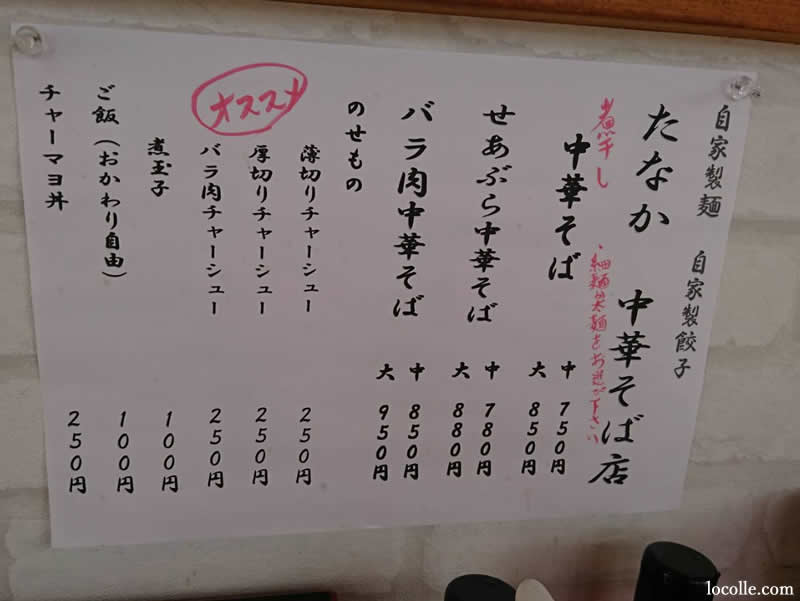 自家製麺　自家製餃子
たなか　中華そば店
煮干し
・細麺太麺をお選び下さい
中華そば　中　750円
大　850円
せあぶら中華そば　中　780円
大　880円
バラ肉中華そば　中　850円
大　950円
のせもの
薄切りチャーシュー　250円
厚切りチャーシュー　250円
オススメ
バラ肉チャーシュー　250円
煮玉子　100円
ご飯（おかわり自由）　100円
チャーマヨ丼　250円
locolle.com